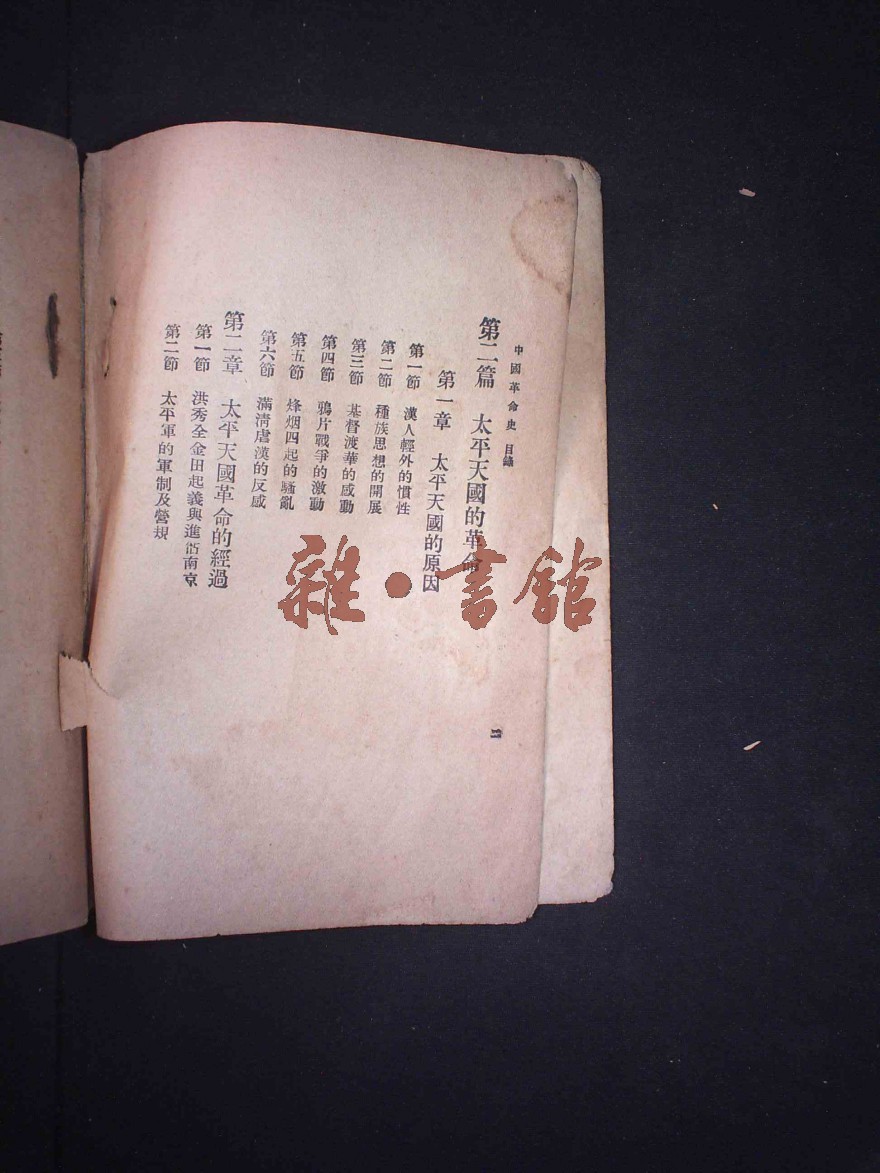 中國革命史 目錄
第二篇 太平天國的革命
第一章 太平天國的原因
第一節 漢人輕外的慣性
第二節 種族思想的開展
第三節 基督渡華的感動
第四節 鴉片戰爭的激動
第五節 烽烟四起的騷亂
第六節 滿清虐漢的反感
第二章 太平天國革命的經過
第一節 洪秀全金田起義與進南京
第二節 太平軍的軍制及營規
雜·書館